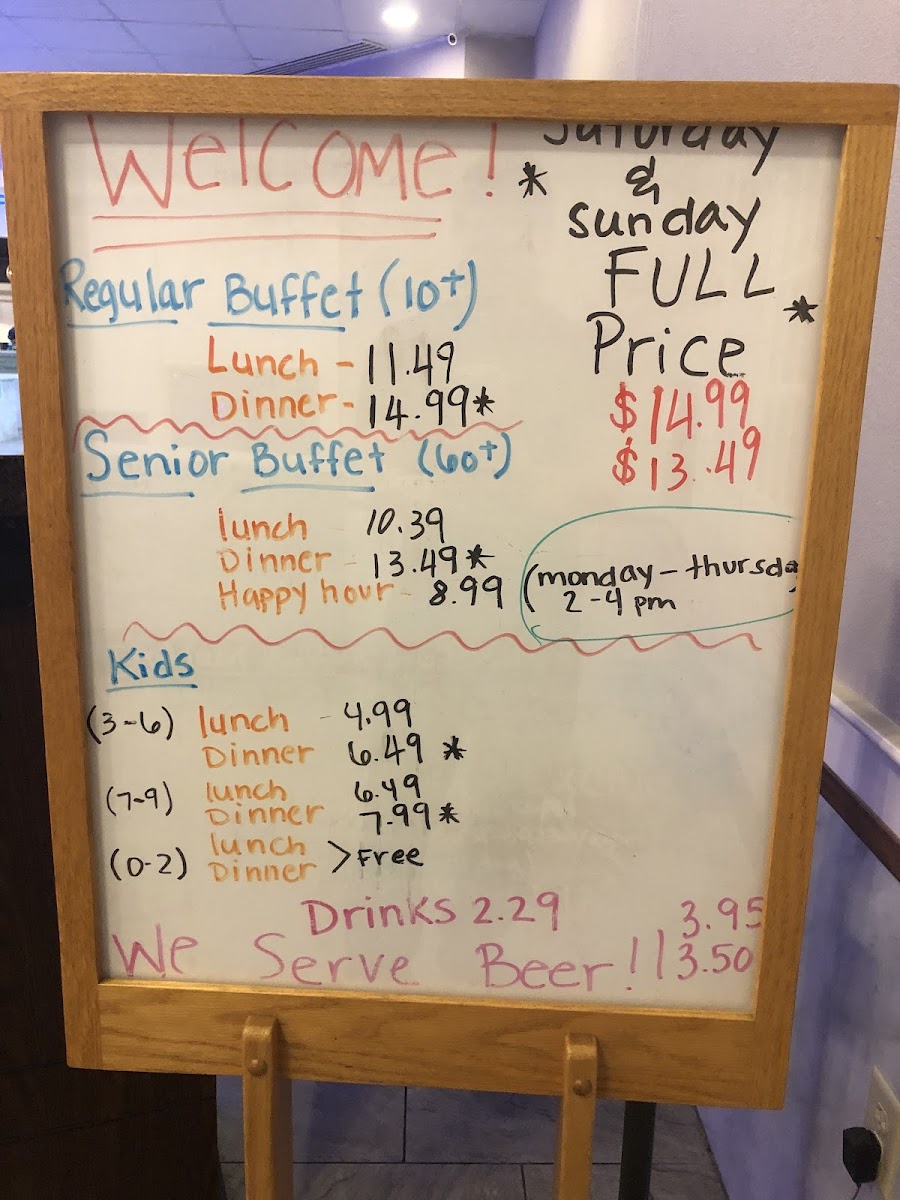 Welcome!
Regular Buffet (10+)
Lunch - 11.49
Dinner - 14.99*
Senior Buffet (60+)
lunch 10.39
Dinner - 13.49*
Happy hour - 8.99 (monday - thursda
2-4 pm
Kids
(3-6) lunch - 4.99
Dinner 6.49 *
(7-9) lunch 6.49
Dinner 7.99*
(0-2) lunch
Dinner > Free
Drinks 2.29
We Serve Beer! 3.95
3.50
Saturday
* &
sunday
FULL
Price *
$14.99
$13.49